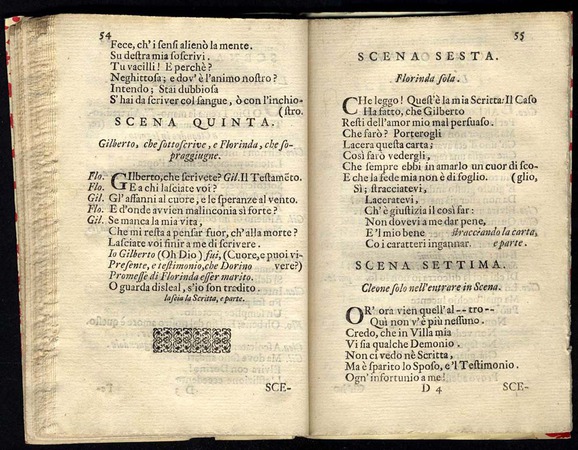 54
Fece, ch'i sensi alienò la mente.
Su destra mia soscrivi.
Tu vacilli! E perchè?
Neghittosa; e dov'è l'animo nostro?
Intendo; Stai dubbiosa
S'hai da scriver col sangue, ò con l'inchio-
(stro.
SCENA QUINTA.
Gilberto, che sottoscrive, e Florinda, che so-
praggiugne.
Flo. Gilberto, che scrivete? Gil. Il Testamẽto.
Flo. E a chi lasciate voi?
Gil. Gl'affanni al cuore, e le speranze al vento.
Flo. E d'onde avvien malinconia sì forte?
Gil. Se manca la mia vita,
Che mi resta a pensar fuor, ch'alla morte?
Lasciate voi finir a me di scrivere.
Io Gilberto (Oh Dio) fui, (Cuore, e puoi vi-
Presente, e testimonio, che Dorino vere?)
Promesse di Florinda esser marito.
O guarda disleal, s'io son tradito.
lascia la Scritta, e parte.
SCE-
55
SCENA SESTA.
Florinda sola.
CHe leggo! Quest'è la mia Scritta: Il Caso
Ha fatto, che Gilberto
Resti dell'amor mio mal persuaso.
Che farò? Porterogli
Lacera questa carta;
Così farò vedergli,
Che sempre ebbi in amarlo un cuor di sco-
E che la fede mia non è di foglio. (glio,
Sì; stracciatevi,
Laceratevi,
Ch'è giustizia il così far:
Non dovevi a me dar pene,
E'l mio bene stracciando la carta,
Co i caratteri ingannar. e parte.
SCENA SETTIMA.
Cleone solo nell'entrare in Scena.
OR'ora vien quell'al--tro--
Quì non v'è più nessuno.
Credo, che in Villa mia
Vi sia qualche Demonio.
Non ci vedo nè Scritta,
Ma è sparito lo Sposo, e'l Testimonio.
Ogn'infortunio a me!
D 4 SCE-